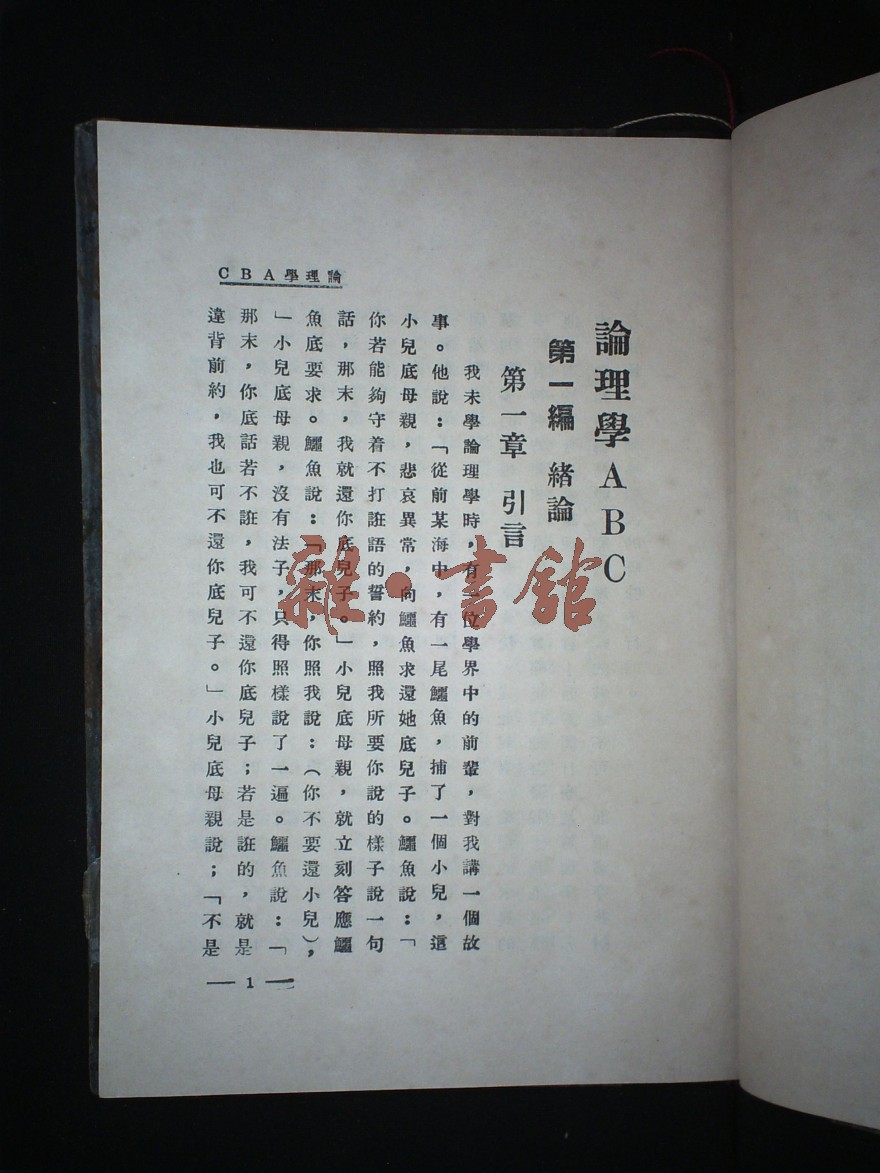 CBA學理論
論理學ABC
第一編 緒論
第一章 引言
我未學論理學時，有一位學界中的前輩，對我講一個故
事。他說：「從前某海中，有一尾鱷魚，捕了一個小兒，這
小兒底母親，悲哀異常，向鱷魚求還她底兒子。鱷魚說：「
你若能夠守着不打誑語的誓約，照我所要你說的樣子說一句
話，那末，我就還你底兒子。」小兒底母親，就立刻答應鱷
魚底要求。鱷魚說：「那末，你照我說：（你不要還小兒），
」小兒底母親，沒有法子，只得照樣說了一遍。鱷魚說：「
那末，你底話若不誑，我可不還你底兒子；若是誑的，就是
違背前約，我也可不還你底兒子。」小兒底母親說；「不是
— 1 —
雜·書館